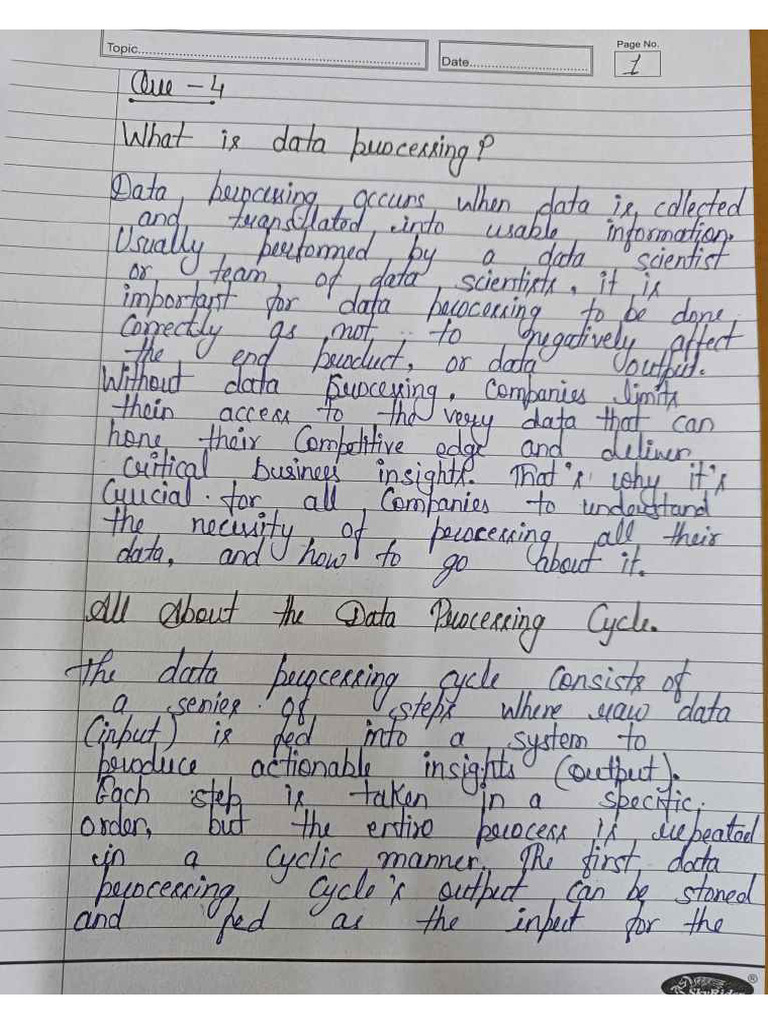 Topic
Date
Page No.
1
Que - 4
What is data processing?
Data processing occurs when data is collected
and translated into usable information.
Usually performed by a data scientist
or team of data scientists, it is
important for data processing to be done
correctly as not to negatively affect
the end product, or data output.
Without data processing, companies limits
their access to the very data that can
hone their competitive edge and deliver
critical business insights. That's why it's
crucial for all companies to understand
the necessity of processing all their
data, and how to go about it.
All About the Data Processing Cycle.
The data processing cycle consists of
a series of steps where raw data
(input) is fed into a system to
produce actionable insights (output).
Each step is taken in a specific
order, but the entire process is repeated
in a cyclic manner. The first data
processing cycle's output can be stored
and fed as the input for the
SkyRider